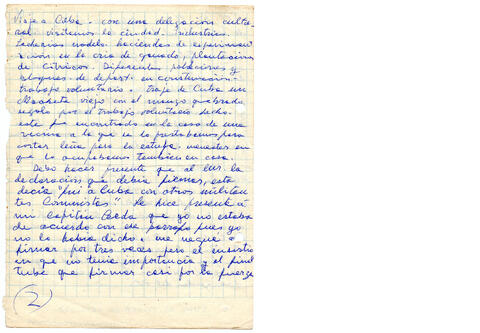 Viaje a Cuba - con una delegación cultu-
ral visitamos la ciudad. Industrias.
Lecherias modelo. haciendas de experimen
tación en la cria de ganado, plantaciones
de citricos. Diferentes poblaciones y
bloques de depart. en construcción.
trabajo voluntario - traje de Cuba un
Machete viejo con el mango quebrado
regalo por el trabajo voluntario hecho.
este fue encontrado en la casa de una
vecina a la que se lo prestabamos para
cortar leña para la estufa. menester en
que lo ocupabamos tambien en casa.
Debo hacer presente que al leer la
declaración que debia firmar, esta
decia "fui a Cuba con otros militan
tes Comunistas" Le hice presente a
mi capitán que yo no estaba
de acuerdo con ese parrafo pues yo
no lo habia dicho y me negue a
firmar por tres veces pero el insistio
en que no tenia importancia y al final
tube que firmar casi por la fuerza
(2)